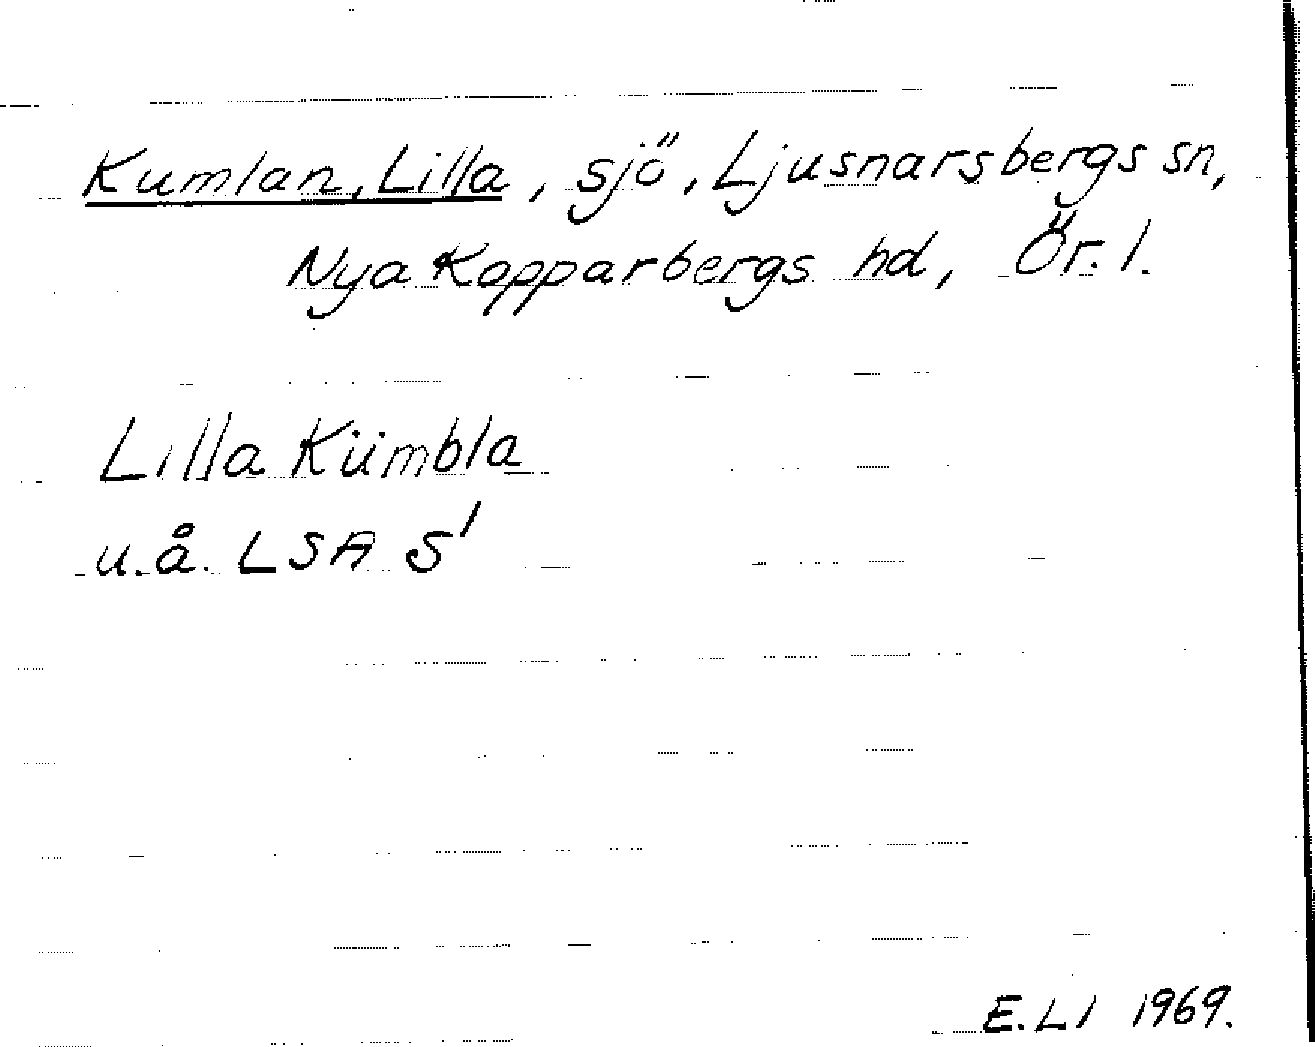 Kumlan, Lilla, sjö, Ljusnarsbergs sn,
Nya Kopparbergs hd, Ör. l.
Lilla Kümbla
u.å. LSA S'
E.LI 1969.